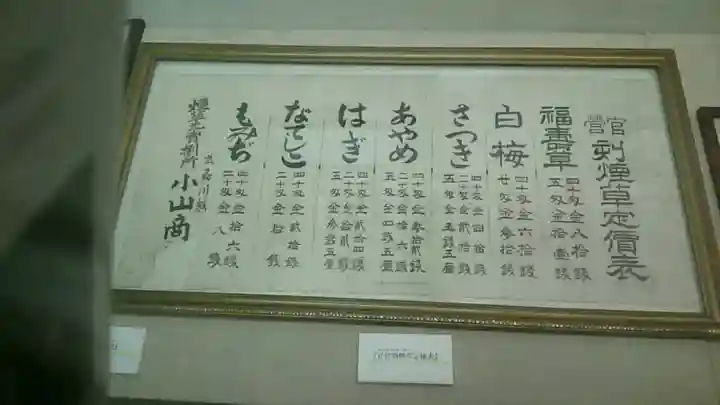 官営刻煙草定價表
福壽草
四十匁金八拾錢
五匁金拾壹錢
白梅
四十匁金六拾錢
廿匁金参拾錢
さつき
四十匁金四拾錢
二十匁金貳拾錢
五匁金五錢五厘
あやめ
四十匁金参拾貳錢
二十匁金拾六錢
五匁金四錢五厘
はぎ
四十匁金貳拾四錢
二十匁金拾貳錢
五匁金参錢五厘
なでしこ
四十匁金貳拾錢
二十匁金拾錢
もみぢ
四十匁金拾六錢
二十匁金八錢
煙草元賣捌所
小山商